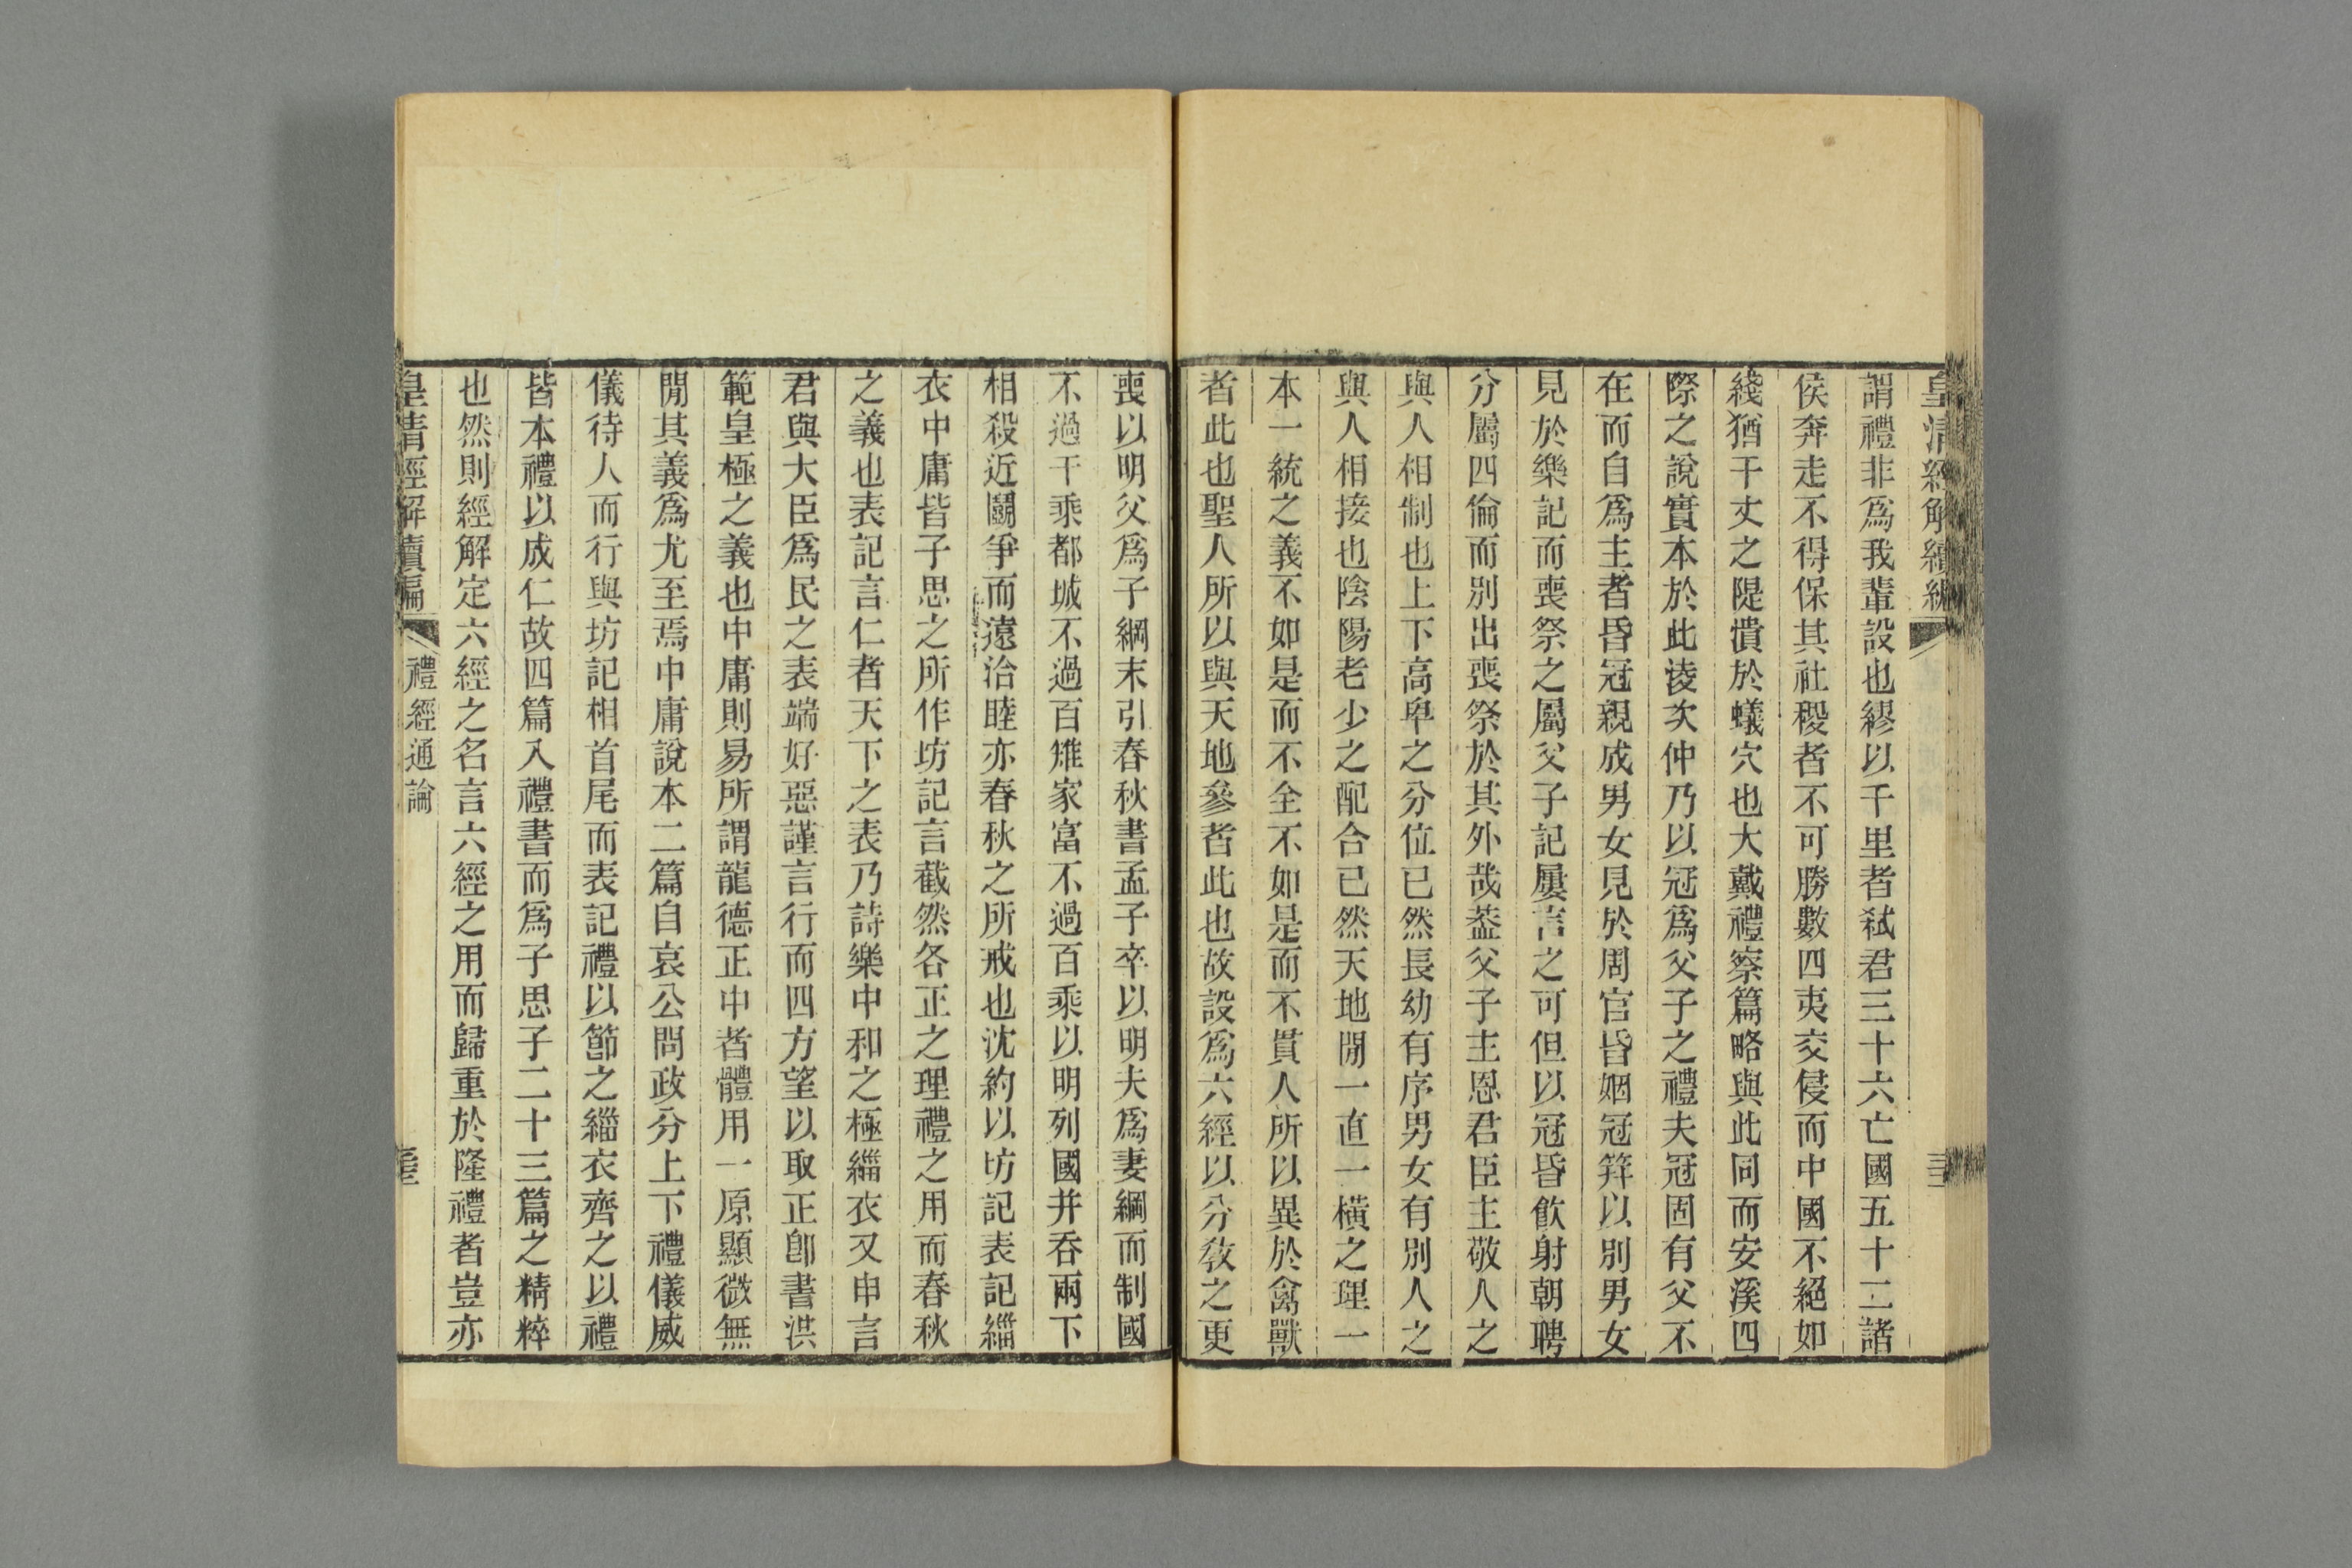 皇清經解續編
謂禮非爲我輩設也繆以千里者弑君三十六亡國五十二諸
侯奔走不得保其社稷者不可勝數四夷交侵而中國不絕如
綫猶千丈之隄潰於蟻穴也大戴禮察篇略與此同而安溪四
際之說實本於此淩次仲乃以冠爲父子之禮夫冠固有父不
在而自爲主者昏冠親成男女見於周官昏姻冠筓以別男女
見於樂記而喪祭之屬父子記屢言之可但以冠昏飮射朝聘
分屬四倫而別出喪祭於其外哉葢父子主恩君臣主敬人之
與人相制也上下高卑之分位已然長幼有序男女有別人之
與人相接也陰陽老少之配合已然天地閒一直一橫之理一
本一統之義不如是而不全不如是而不貫人所以異於禽獸
者此也聖人所以與天地參者此也故設爲六經以分敎之更
喪以明父爲子綱末引春秋書孟子卒以明夫爲妻綱而制國
不過千乘都城不過百雉家富不過百乘以明列國并吞兩下
相殺近鬭爭而遠洽睦亦春秋之所戒也沈約以坊記表記緇
衣中庸皆子思之所作坊記言截然各正之理禮之用而春秋
之義也表記言仁者天下之表乃詩樂中和之極緇衣又申言
君與大臣爲民之表端好惡謹言行而四方望以取正卽書洪
範皇極之義也中庸則易所謂龍德正中者體用一原顯微無
閒其義爲尤至焉中庸說本二篇自哀公問政分上下禮儀威
儀待人而行與坊記相首尾而表記禮以節之緇衣齊之以禮
皆本禮以成仁故四篇入禮書而爲子思子二十三篇之精粹
也然則經解定六經之名言六經之用而歸重於隆禮者豈亦
皇清經解續編 禮經通論